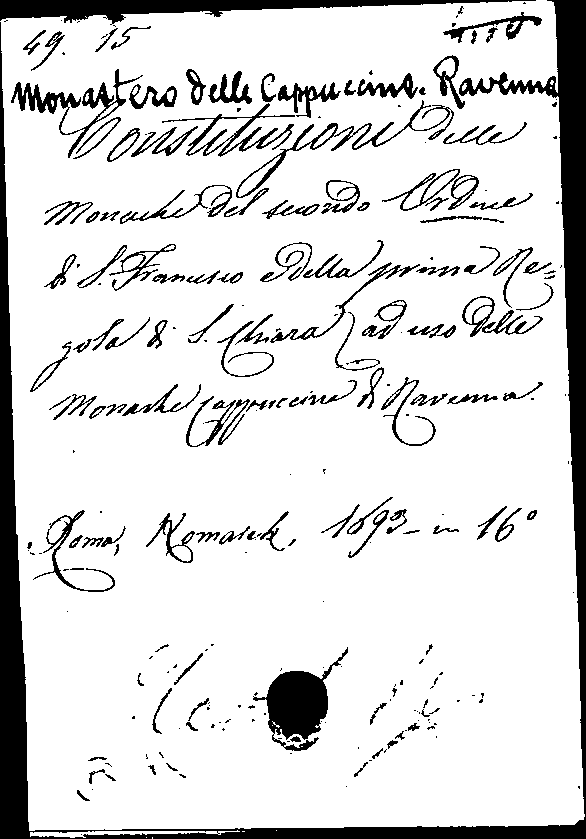 49. 15
Monastero delle Cappuccine. Ravenna
Constituzioni delle
Monache del secondo Ordine
di S. Francesco e della prima Re=
gola di S. Chiara ad uso delle
Monache Cappuccine di Ravenna.
Roma, Komarek, 1693 - in 16°